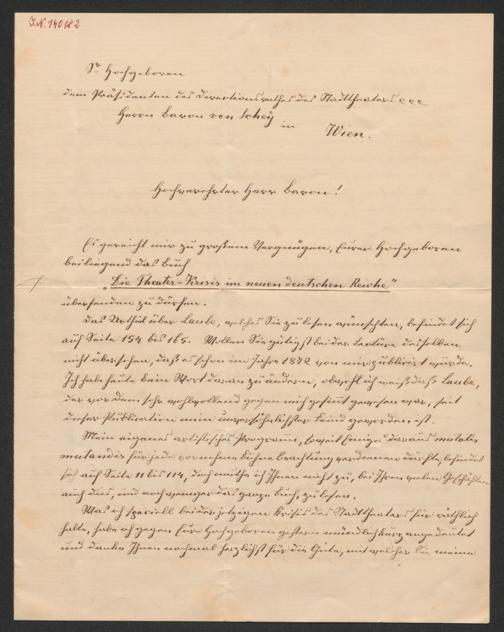 J.N. 140182
Sr. Hochgeboren
dem Präsidenten des Directionsrathes des Stadttheaters etc etc
Herrn Baron von Schey
in Wien.
Hochverehrter Herr Baron!
Es gereicht mir zu großem Vergnügen, Eurer Hochgeboren
beiliegend das Buch
„Die Theater-Krisis im neuen deutschen Reiche“
übersenden zu dürfen.
Das Urtheil über Laube, welches Sie zu lesen wünschten, befindet sich
auf Seite 154 bis 165. Wollen Sie gütigst bei der Lectüre desselben
nicht übersehen, daß es schon im Jahre 1872 von mir publicirt wurde.
Ich habe heute kein Wort daran zu ändern, obwohl ich weiß, daß Laube,
der vordem sehr wohlwollend gegen mich gesinnt gewesen war, seit
dieser Publication mein unversöhnlichster Feind geworden ist.
Mein eigenes artistisches Programm, soweit Einiges daraus mutatis
mutandis für jede vornehme Bühne Beachtung verdienen dürfte, befindet
sich auf Seite 11 bis 114, doch muthe ich Ihnen nicht zu, bei Ihren vielen Geschäften
auch dies, und noch weniger das ganze Buch, zu lesen.
Was ich speciell bei der jetzigen Krisis des Stadttheaters für räthlich
halte, habe ich gegen Eure Hochgeboren gestern mündlich kurz angedeutet
und danke Ihnen nochmal herzlichst für die Güte, mit welcher Sie meine